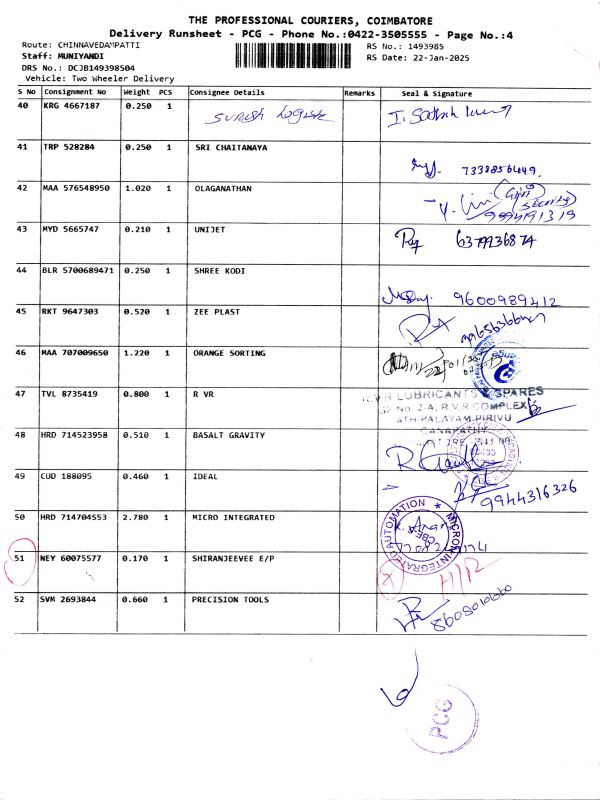 THE PROFESSIONAL COURIERS, COIMBATORE
Delivery Runsheet - PCG - Phone No.:0422-3505555 - Page No.:4
Route: CHINNAVEDAMPATTI
RS No.: 1493985
Staff: MUNIYANDI
RS Date: 22-Jan-2025
DRS No.: DCJB149398504
Vehicle: Two Wheeler Delivery
S No Consignment No Weight PCS Consignee Details Remarks Seal & Signature
40 KRG 4667187 0.250 1 Suresh Logistic
41 TRP 528284 0.250 1 SRI CHAITANAYA
7338856449.
42 MAA 576548950 1.020 1 OLAGANATHAN
(Security)
9994191319
43 MYD 5665747 0.210 1 UNIJET
6379936874
44 BLR 5700689471 0.250 1 SHREE KODI
9600989412
45 RKT 9647303 0.520 1 ZEE PLAST
46 MAA 707009650 1.220 1 ORANGE SORTING
47 TVL 8735419 0.800 1 R VR
R.V.R LUBRICANTS & SPARES
No. 2-A, R.V.R COMPLEX
ATHIPALAYAM PIRIVU
GANAPATHY
48 HRD 714523958 0.510 1 BASALT GRAVITY
49 CUD 188095 0.460 1 IDEAL
9944316326
50 HRD 714704553 2.780 1 MICRO INTEGRATED
MICRON INTEGRATED AUTOMATION ★
CBE-6
51 NEY 60075577 0.170 1 SHIRANJEEVEE E/P
52 SVM 2693844 0.660 1 PRECISION TOOLS
PCG